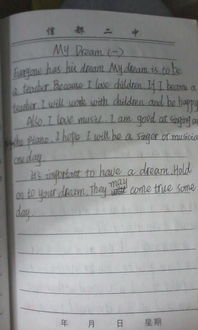 信 郵 二 中
My Dream (一)
Everyone has his dream. My dream is to be
a teacher. Because I love children. If I become a
teacher. I will work with children and be happy
Also, I love music. I am good at singing and
the Piano. I hope I will be a singer or musician
one day.
It's important to have a dream. Hold
on to your dream. They may come true some
day.
年 月 日 星期